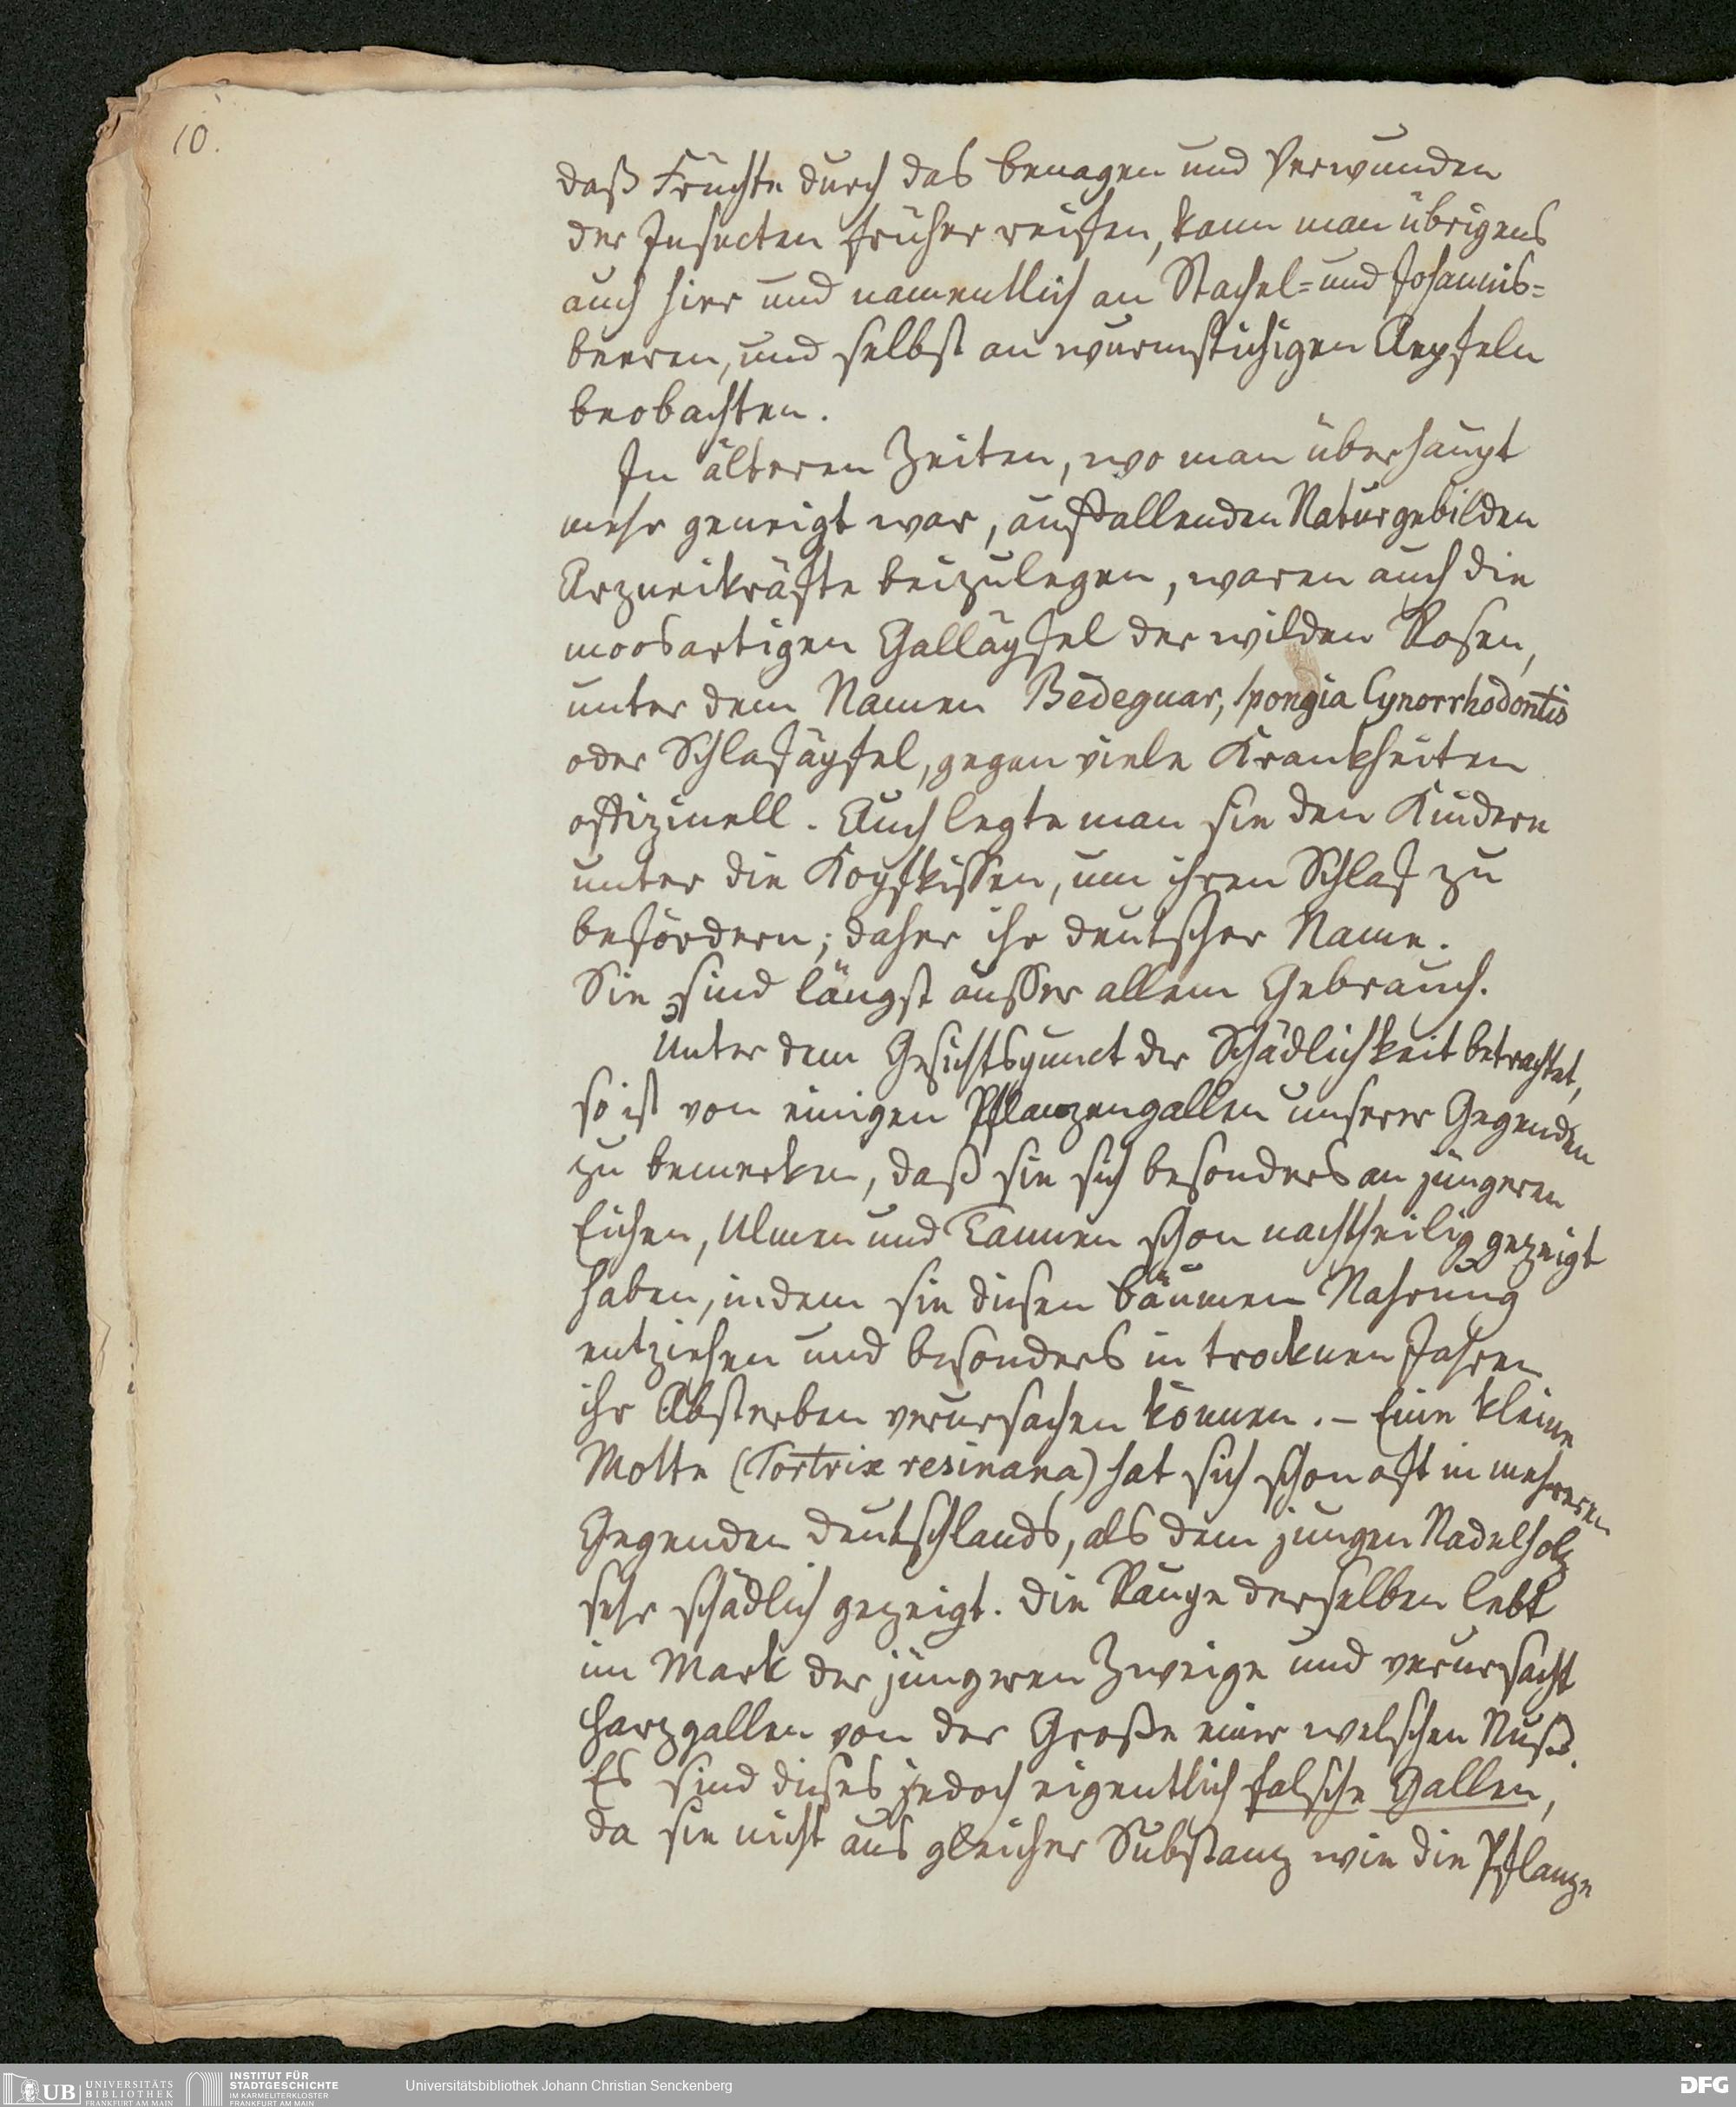 10.
daß Früchte durch das benagen und Verwunden
der Insecten früher reifen, kann man übrigens
auch hier und namentlich an Stachel= und Johannis=
beeren, und selbst an wurmstichigen Aepfeln
beobachten.
In älteren Zeiten, wo man überhaupt
mehr geneigt war, auffallenden Naturgebilden
Arzneikräfte beizulegen, waren auch die
moosartigen Galläpfel der wilden Rosen,
unter dem Namen Bedeguar, Spongia Cynorrhodontis
oder Schlafäpfel, gegen viele Krankheiten
offizinell. Auch legte man sie den Kindern
unter die Kopfkissen, um ihren Schlaf zu
befördern; daher ihr deutscher Name.
Sie sind längst ausser allem Gebrauch.
Unter dem Gesichtspunct der Schädlichkeit betrachtet,
so ist von einigen Pflanzengallen unserer Gegenden
zu bemerken, daß sie sich besonders an jüngeren
Eichen, Ulmen und Tannen schon nachtheilig gezeigt
haben, indem sie diesen bäumen Nahrung
entziehen und besonders in trocknen Jahren
ihr Absterben verursachen können. – Eine kleine
Motte (Tortrix resinana) hat sich schon oft in mehreren
Gegenden Deutschlands, als dem jungen Nadelholz
sehr schädlich gezeigt. Die Raupe derselben lebt
im Mark der jüngeren Zweige und verursacht
Harzgallen von der Große einer welschen Nuß.
Es sind dieses jedoch eigentlich falsche Gallen,
da sie nicht aus gleicher Substanz wie die Pflanze
UB UNIVERSITÄTS BIBLIOTHEK FRANKFURT AM MAIN
INSTITUT FÜR STADTGESCHICHTE IM KARMELITERKLOSTER FRANKFURT AM MAIN
Universitätsbibliothek Johann Christian Senckenberg
DFG